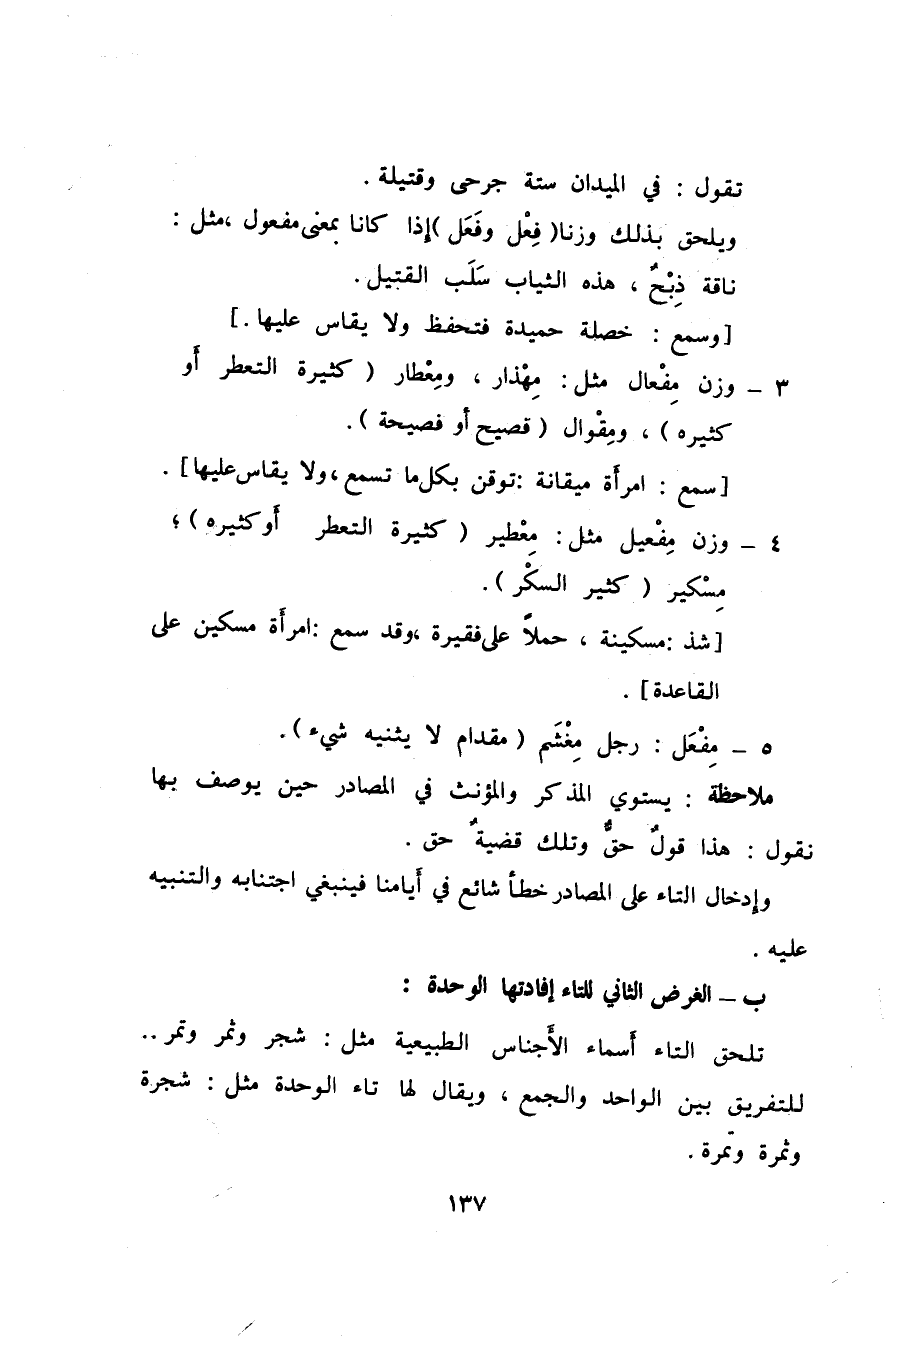 تقول : في الميدان ستة جرحى وقتيلة .
ويلحق بذلك وزنا( فِعْل وفَعَل )إذا كانا بمعنى مفعول ،مثل :
ناقة ذِبْحٌ ، هذه الثياب سَلَب القتيل .
[وسمع : خصلة حميدة فتحفظ ولا يقاس عليها .]
٣ – وزن مِفْعال مثل : مِهْذار ، ومِعْطار ( كثيرة التعطر أو
كثيره ) ، ومِقْوال ( فصيح أو فصيحة ) .
[سمع : امرأة ميقانة :توقن بكل ما تسمع ،ولا يقاس عليها] .
٤ – وزن مِفْعيل مثل : مِعْطير ( كثيرة التعطر أو كثيره ) ؛
مِسْكير ( كثير السكْر ) .
[شذ :مسكينة ، حملاً على فقيرة ،وقد سمع :امرأة مسكين على
القاعدة] .
٥ – مِفْعَل : رجل مِغْشَم ( مقدام لا يثنيه شيء ) .
ملاحظة : يستوي المذكر والمؤنث في المصادر حين يوصف بها
نقول : هذا قولٌ حقٌّ وتلك قضيةٌ حق .
وإدخال التاء على المصادر خطأ شائع في أيامنا فينبغي اجتنابه والتنبيه
عليه .
ب – الغرض الثاني للتاء إفادتها الوحدة :
تلحق التاء أسماء الأجناس الطبيعية مثل : شجر وثمر وتمر ..
للتفريق بين الواحد والجمع ، ويقال لها تاء الوحدة مثل : شجرة
وثمرة وتمرة .
١٣٧